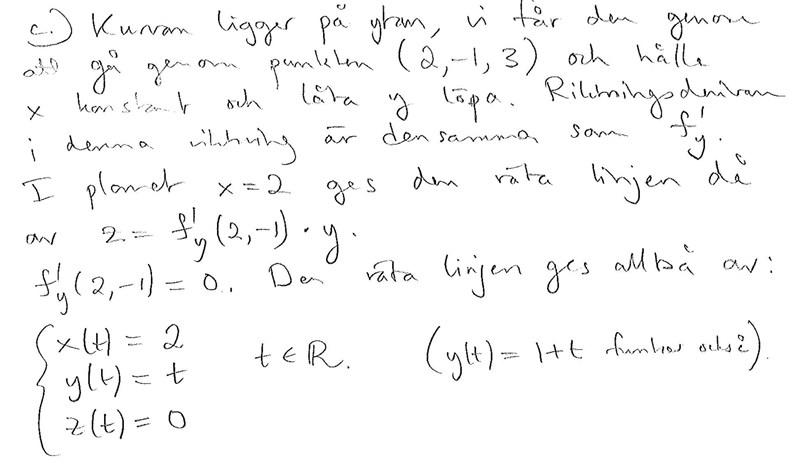 c.) Kurvan ligger på ytan, vi får den genom
att gå genom punkten (2,-1,3) och hålla
x konstant och låta y löpa. Riktningsderivatan
i denna riktning är densamma som f'y.
I planet x=2 ges den räta linjen då
av z = f'y(2,-1) · y.
f'y(2,-1) = 0. Den räta linjen ges alltså av:
x(t) = 2
y(t) = t t ∈ R. (y(t) = 1+t funkar också).
z(t) = 0